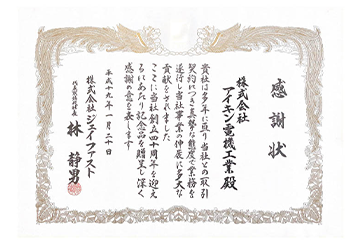 感謝状
株式会社
アイモン電機工業殿
貴社は多年に亘り当社との取引
契約につき真摯な態度で業務を
遂行し当社事業の伸展に多大な
貢献をされました
ここに当社創立四十周年を迎え
るにあたり記念品を贈呈し深く
感謝の意を表します
平成十九年一月二十日
代表取締役社長
株式会社ジェイファスト
林静男